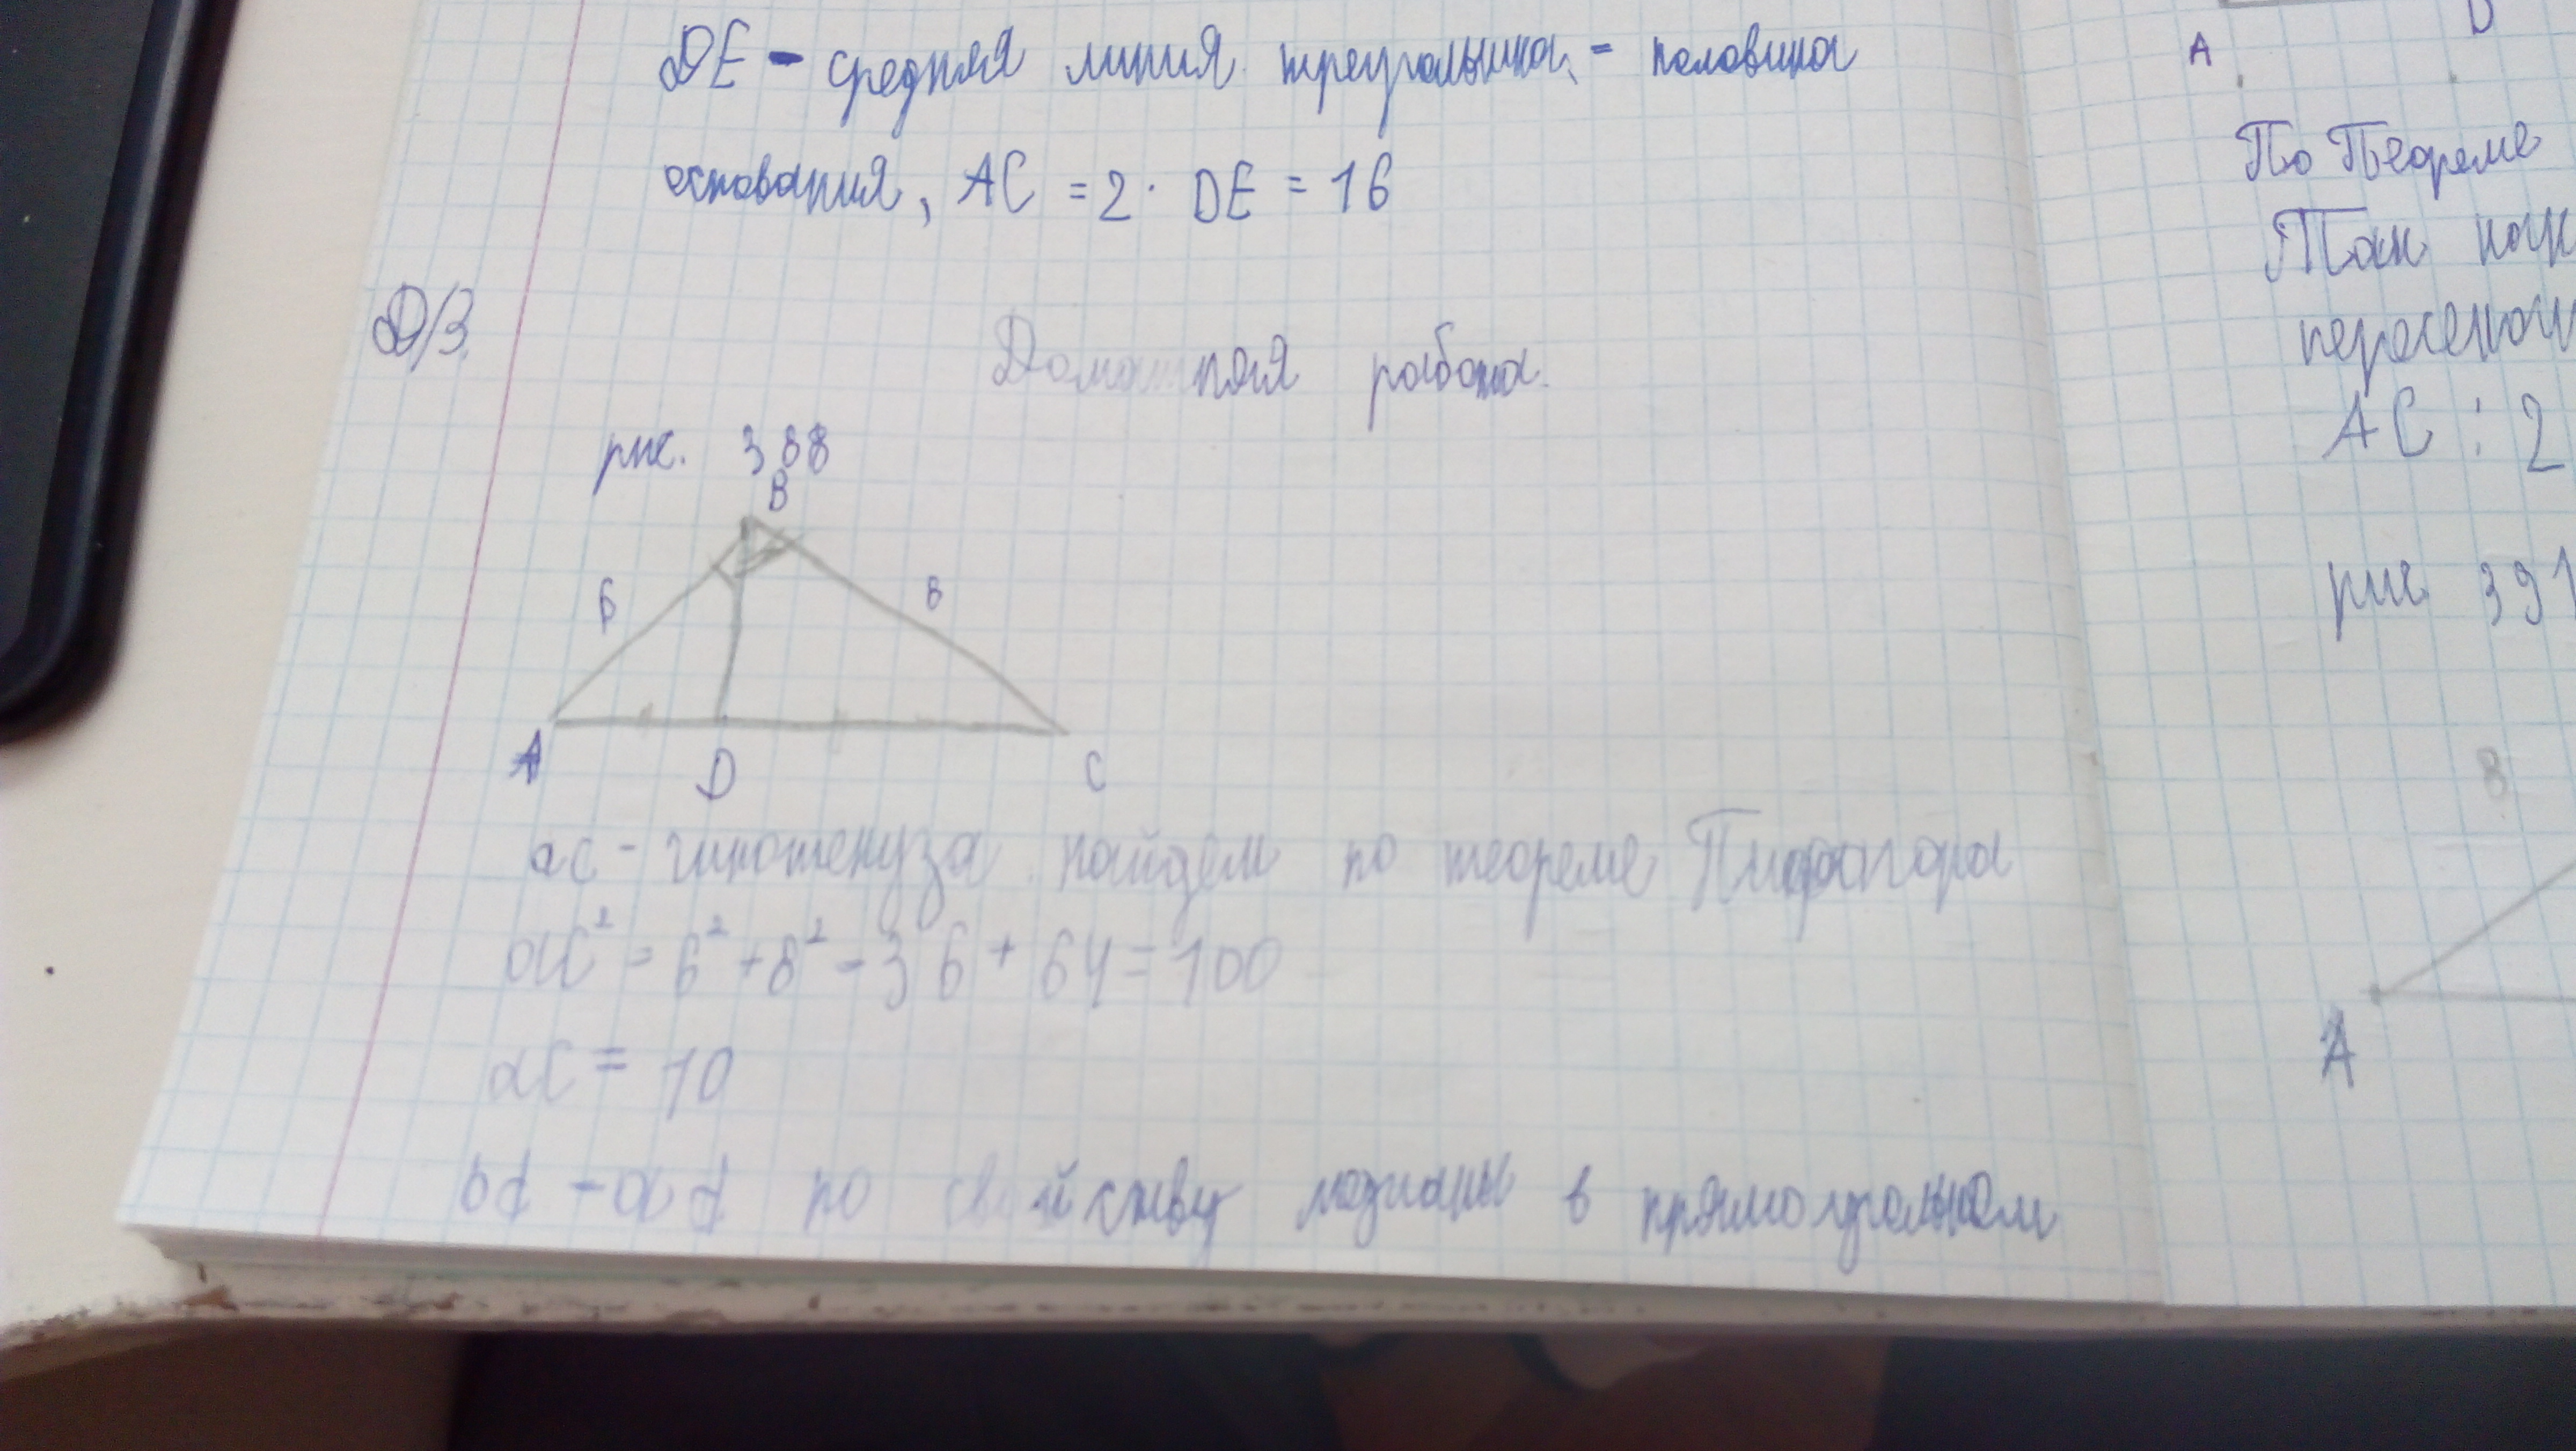 DE - средняя линия треугольника - половина
основания, AC = 2 · DE = 16
Д/З.
Домашняя работа.
рис. 388
B
6
8
A
D
C
ас - гипотенуза найдем по теореме Пифагора
ас² = 6² + 8² = 36 + 64 = 100
ас = 10
bd - ad по свойству медианы в прямоугольном
A
D
По Теореме
Так как
AC : 2
рис 391
8
A